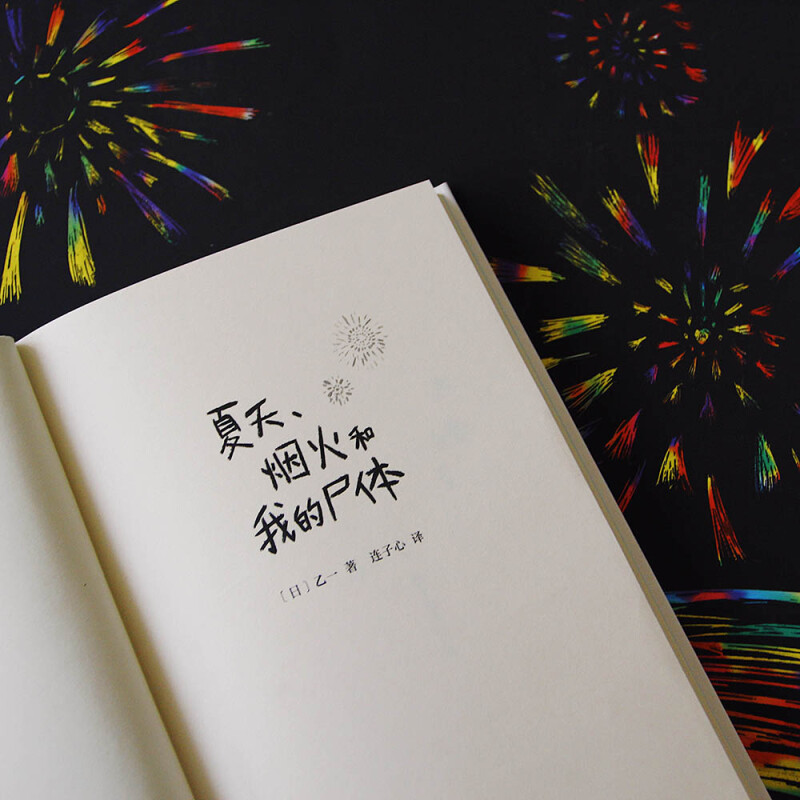 夏天、
烟火和
我的尸体
〔日〕乙一 著 连子心 译